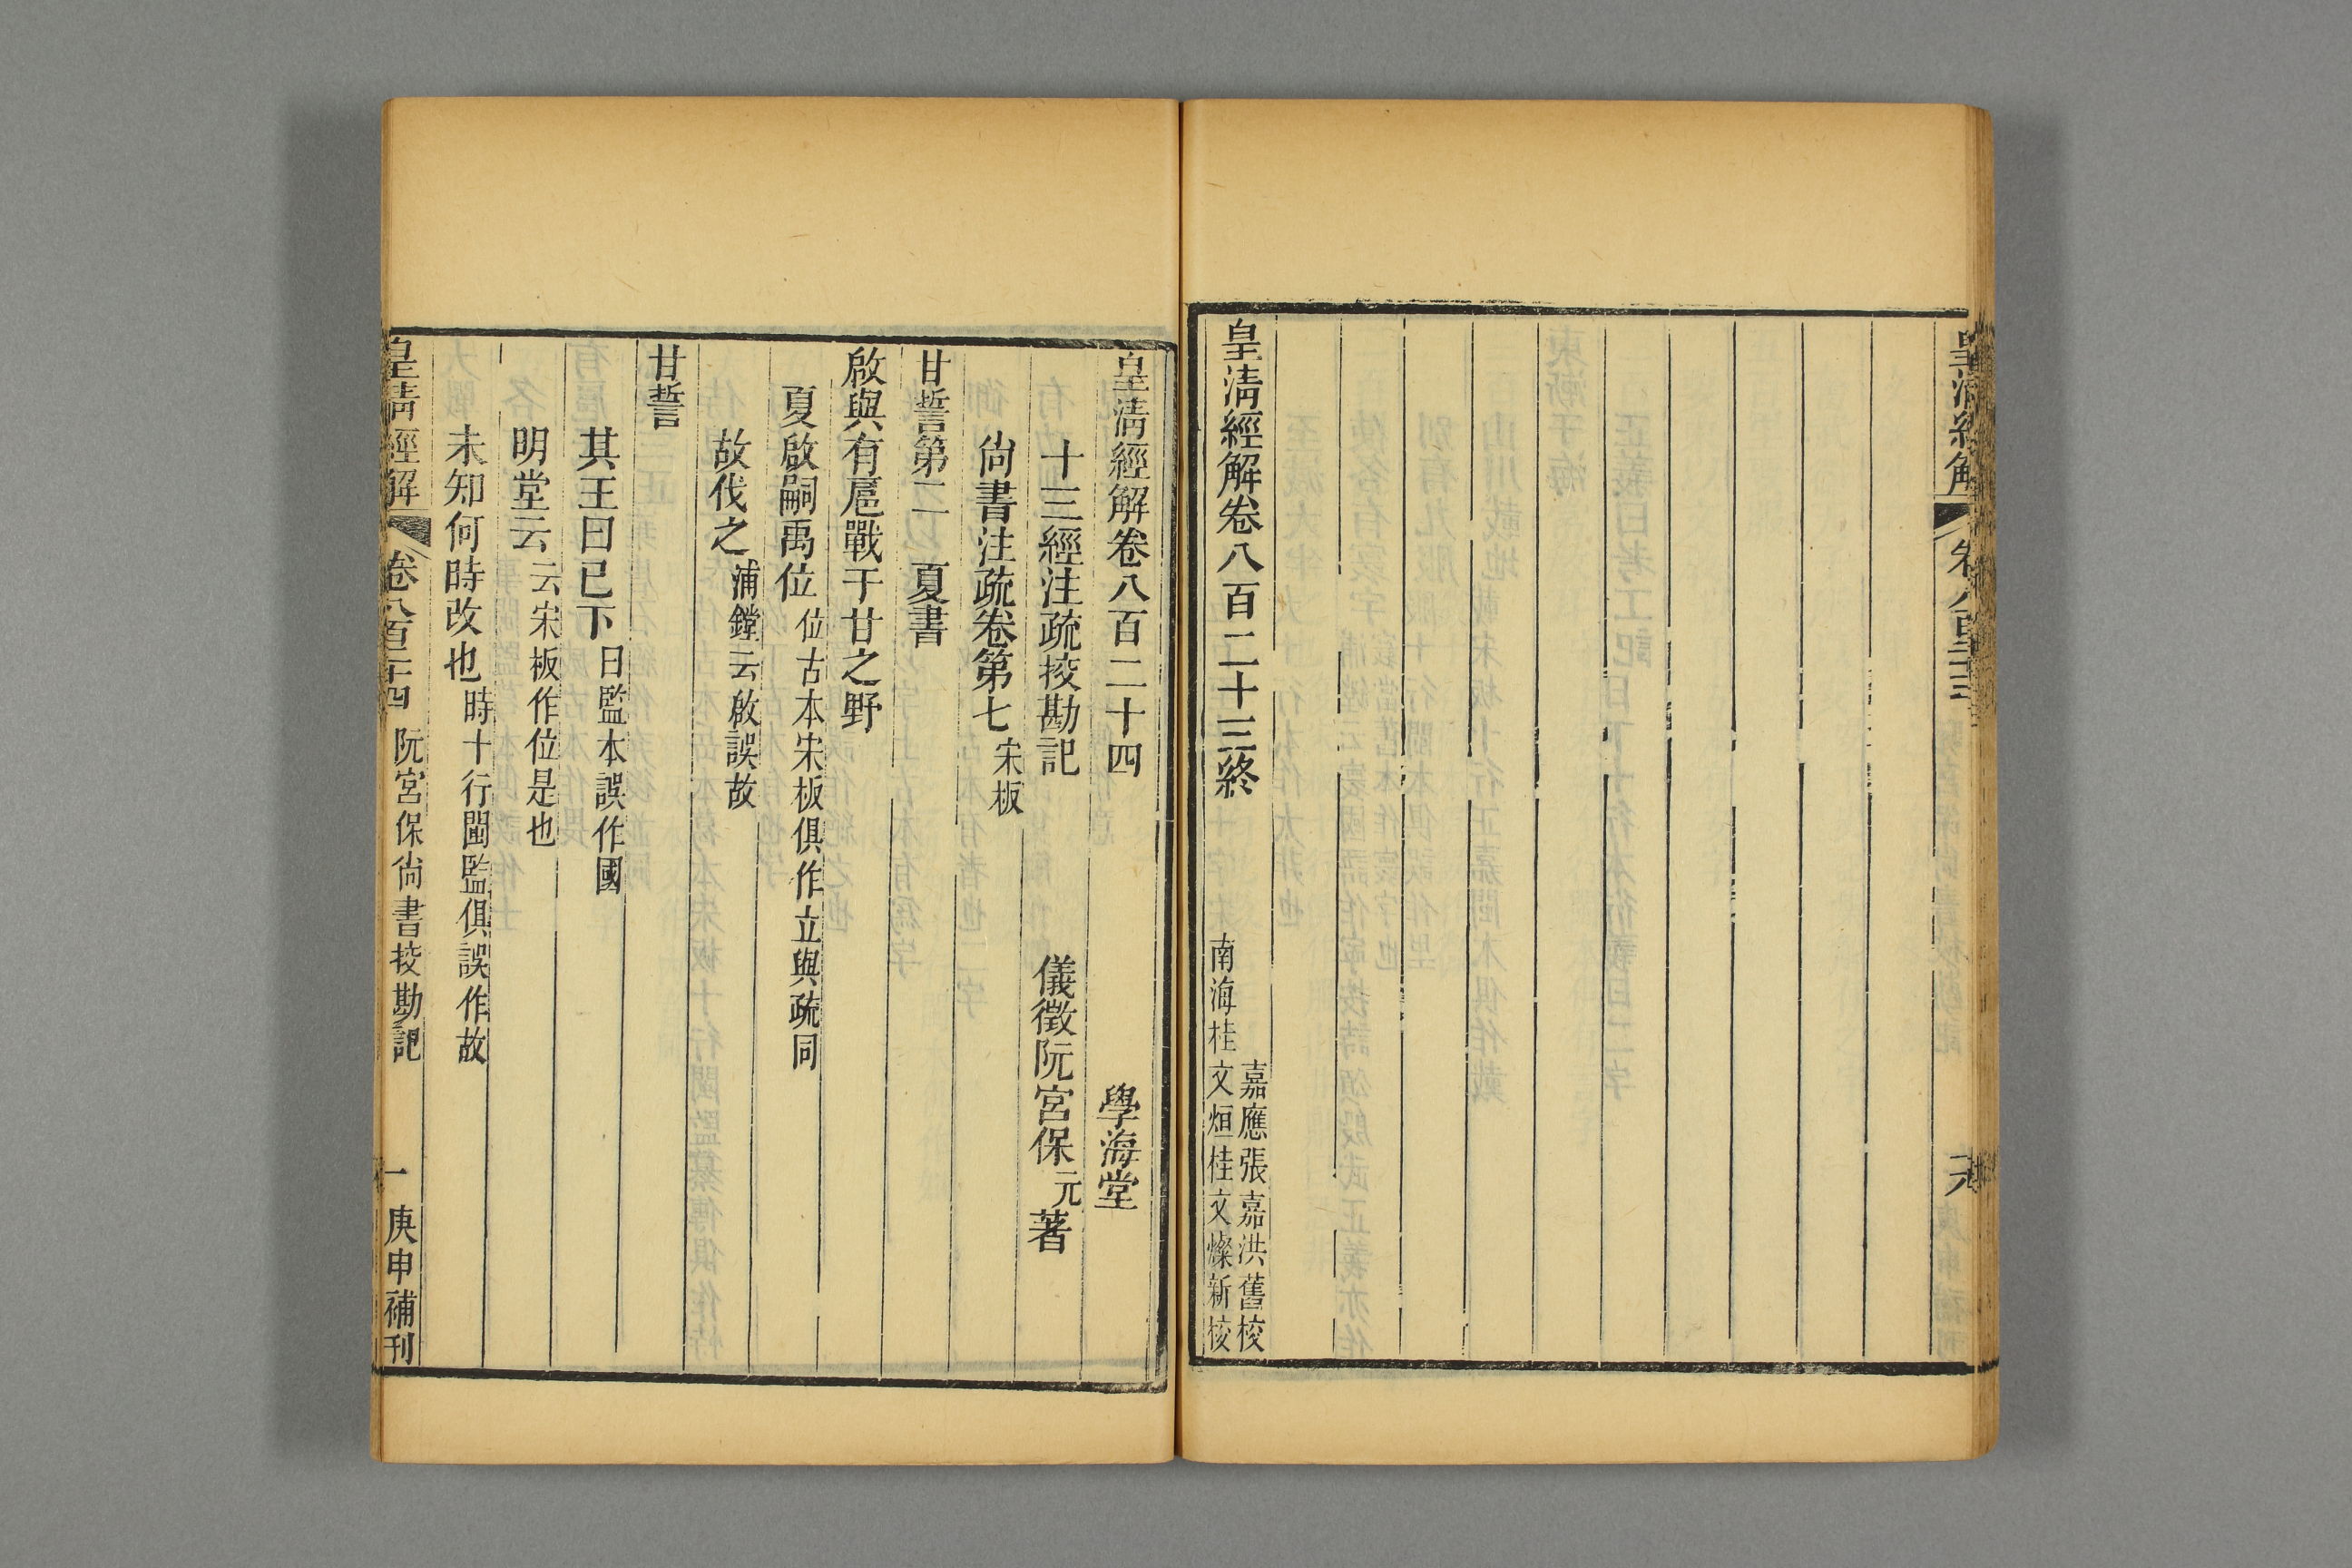 皇清經解
皇清經解卷八百二十三終
嘉應張嘉洪舊校
南海桂文烜桂文燦新校
皇清經解卷八百二十四
學海堂
十三經注疏挍勘記
儀徵阮宮保元著
尙書注疏卷第七宋板
甘誓第二 夏書
啟與有扈戰于甘之野
夏啟嗣禹位位古本宋板俱作立與疏同
故伐之浦鏜云啟誤故
甘誓
其王曰已下日監本誤作國
明堂云云宋板作位是也
未知何時改也時十行閩監俱誤作故
皇清經解 卷八百二十四 阮宮保尙書挍勘記 一 庚申補刊